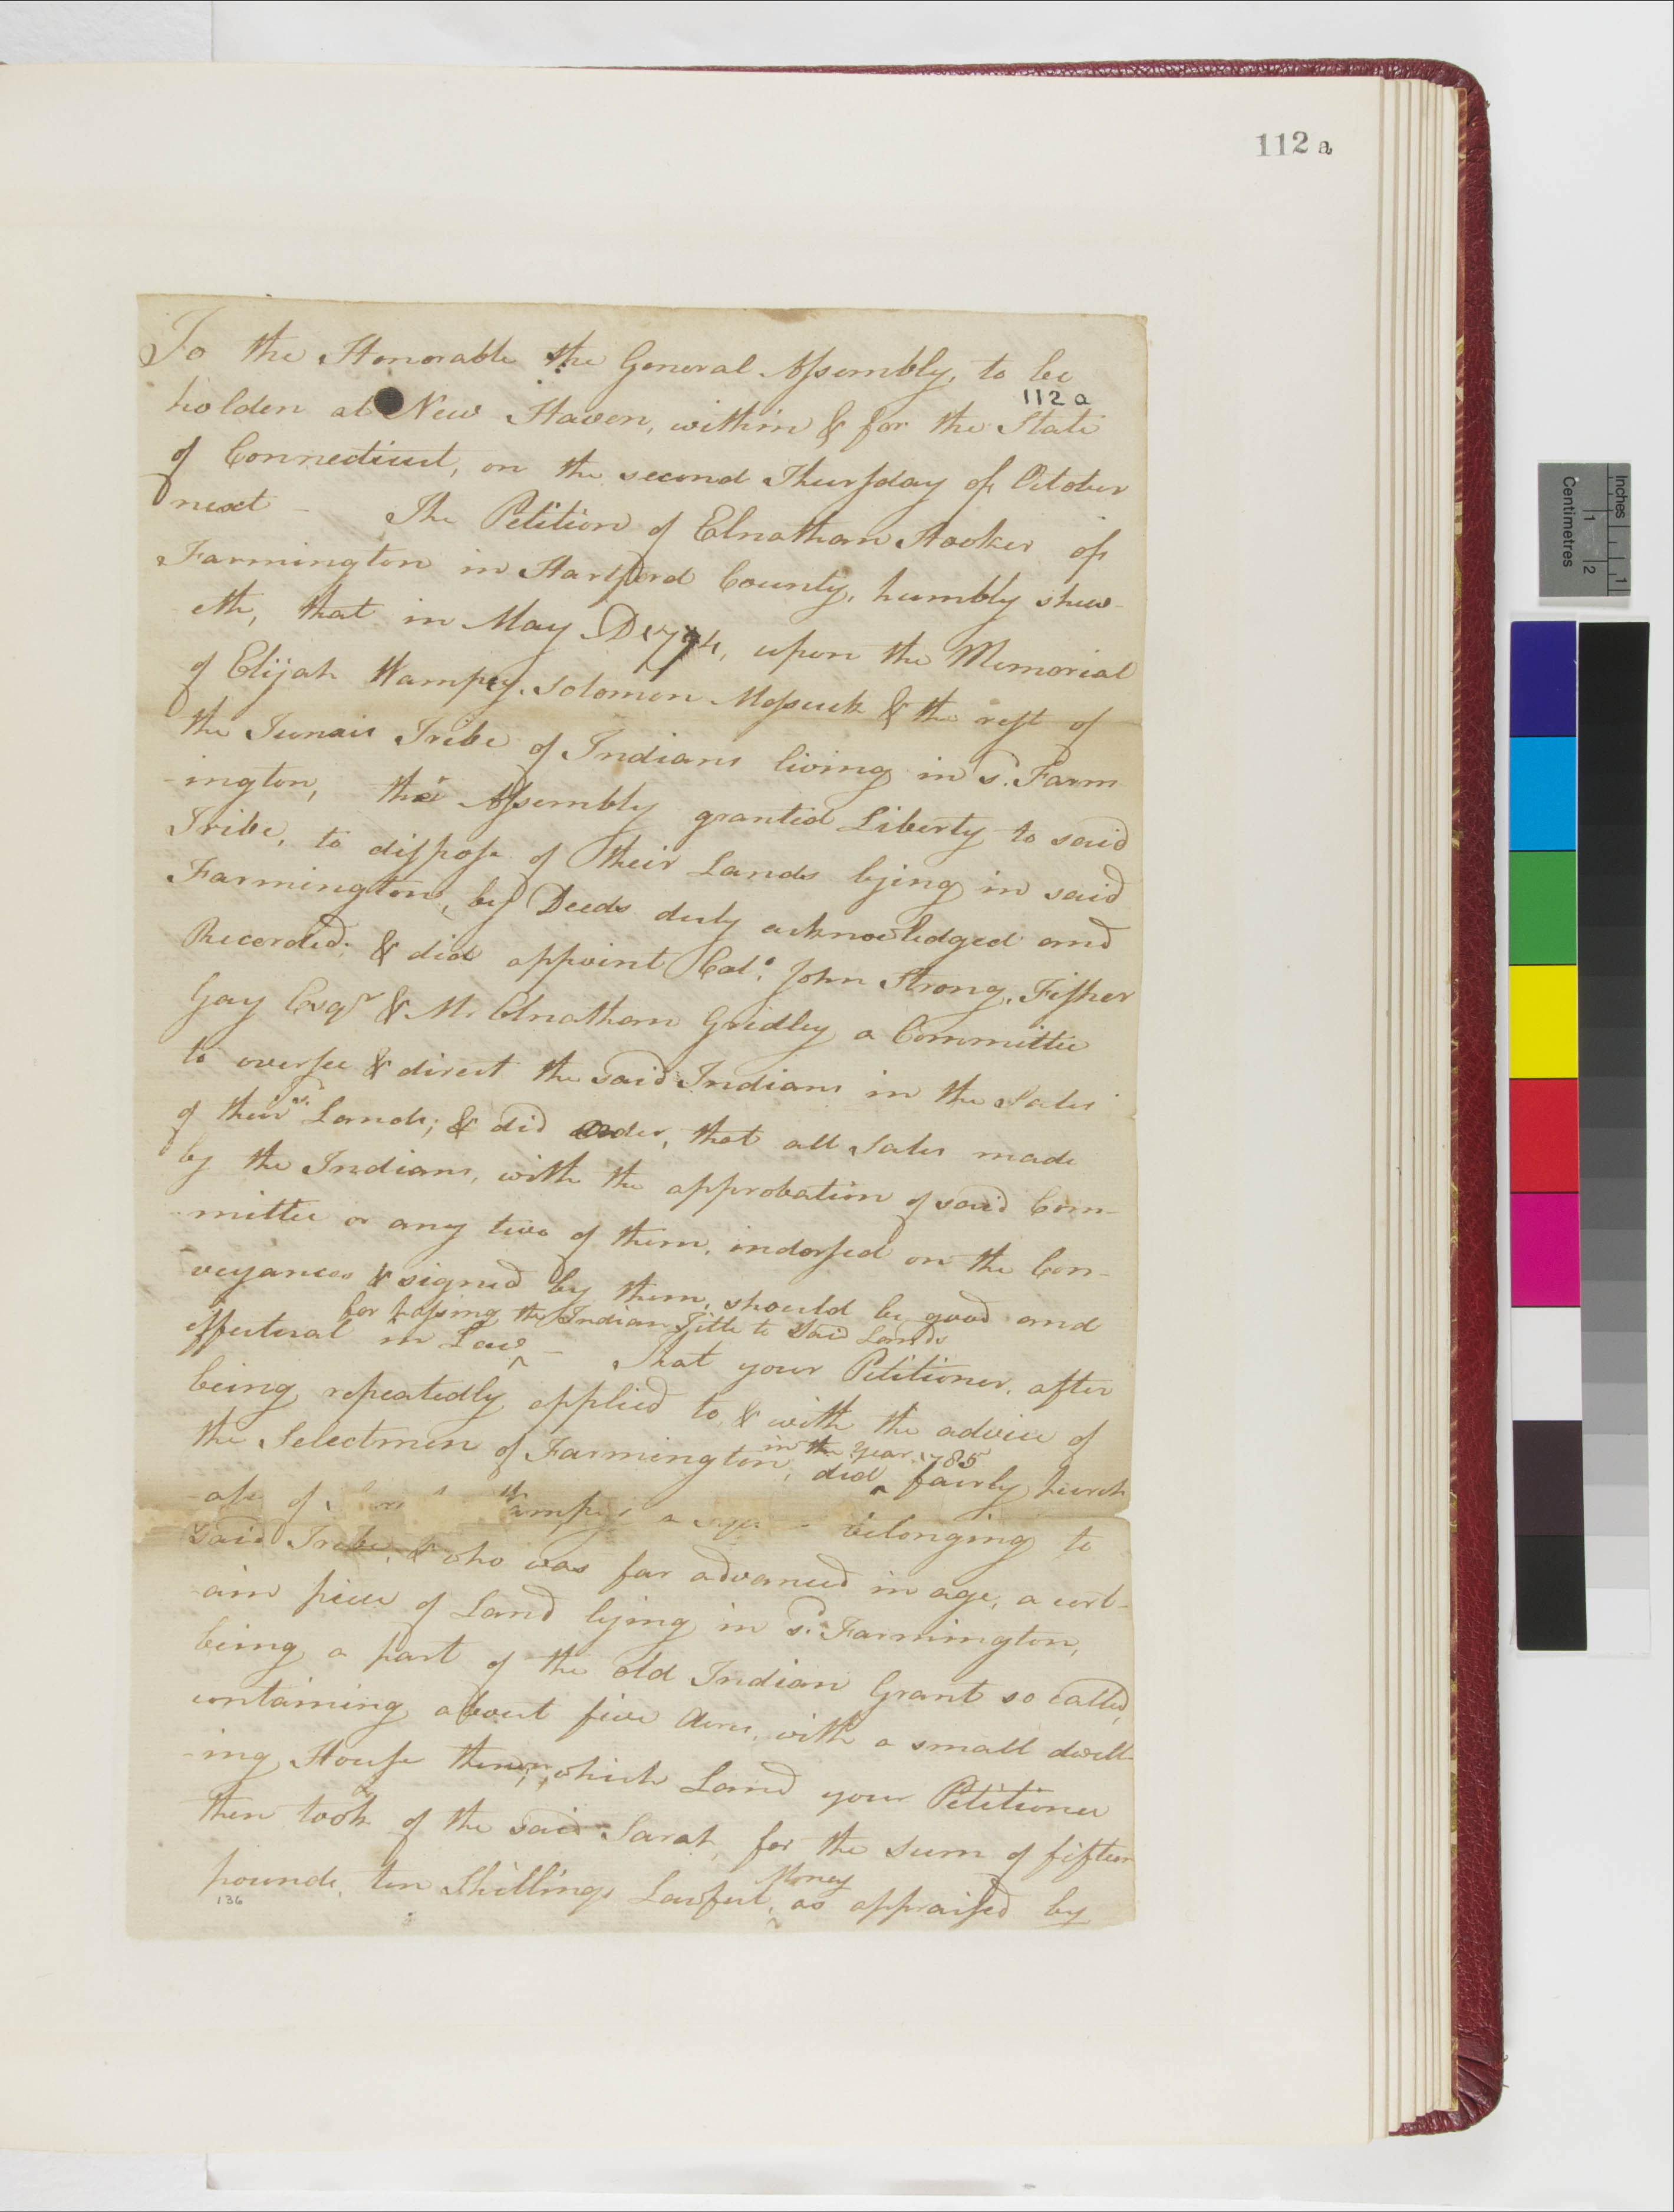 112 a
To the Honorable the General Assembly, to be
112 a
holden at New Haven, within & for the State
of Connecticut, on the second Thursday of October
next - The Petition of Elnathan Hooker of
Farmington in Hartford County, humbly shew-
eth, that in May AD 1774, upon the Memorial
of Elijah Wampey, Solomon Mossuck & the rest of
the Tunxis Tribe of Indians living in sd. Farm
-ington, the Assembly granted Liberty to said
Tribe, to dispose of their Lands lying in said
Farmington, by Deeds duly acknowledged and
Recorded; & did appoint Colo. John Strong, Fisher
Gay Esqr & Mr. Elnathan Gridley a Committee
to oversee & direct the said Indians in the Sales
of their sd. Lands; & did order, that all Sales made
by the Indians, with the approbation of said Com-
-mittee or any two of them, indorsed on the Con-
-veyances & signed by them, should be good and
for passing the Indian Title to said Lands
effectual in Law ^ - That your Petitioner, after
being repeatedly applied to & with the advice of
in the Year 1785
the Selectmen of Farmington, did ^ fairly purch
-ase of Wampey a belonging to
said Tribe, & who was far advanced in age, a cert-
-ain piece of Land lying in sd. Farmington,
being a part of the old Indian Grant so called,
containing about five Acres, with a small dwell-
-ing House thereon, which Land your Petitioner
then took of the said Sarah, for the sum of fifteen
Money
pounds, ten Shillings Lawful ^ as appraised by
136
Inches
1
Centimetres
1
2